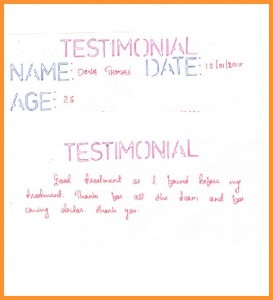 TESTIMONIAL
NAME: DONA THOMAS DATE:
AGE: 26
TESTIMONIAL
Good treatment as I found before my
treatment. Thanks for all the team and for
caring doctor. Thank you.